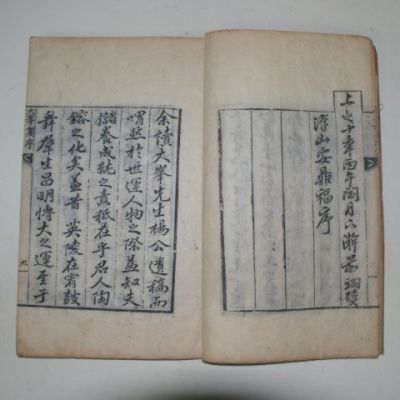 上之十年丙午閏月 澣前翊贊
山安鼎福序
余讀大峯先生楊公遺稿而
喟然於世運人物之際益知夫
儲養成就之責秖在乎君人陶
鎔之化矣盖昔 英陵在宥鼓
舞群生昌明博大之運至于
峯集序 九